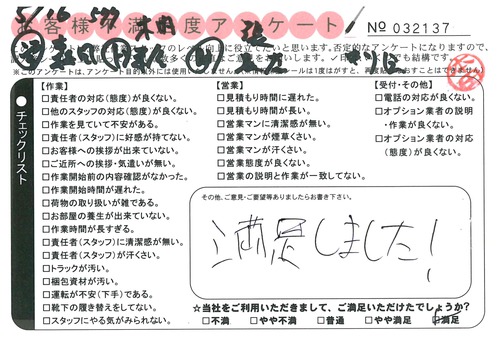 5/16
お客様不満足度アンケート
No 032137
スタッフのレベル向上に役立てたいと思います。否定的なアンケートになりますので、
※このアンケートは、アンケート目的以外には使用いたしません。
チェックリスト
【作業】
□責任者の対応(態度)が良くない。
□他のスタッフの対応(態度)が良くない。
□作業を見ていて不安がある。
□責任者(スタッフ)に好感が持てない。
□お客様への挨拶が出来ていない。
□ご近所への挨拶・気遣いが無い。
□作業開始前の内容確認がなかった。
□作業開始時間が遅れた。
□荷物の取り扱いが雑である。
□お部屋の養生が出来ていない。
□作業時間が長すぎる。
□責任者(スタッフ)に清潔感が無い。
□責任者(スタッフ)が汗くさい。
□トラックが汚い。
□梱包資材が汚い。
□運転が不安(下手)である。
□靴下の履き替えをしてない。
□スタッフにやる気がみられない。
【営業】
□見積もり時間に遅れた。
□見積もり時間が長い。
□営業マンに清潔感が無い。
□営業マンが煙草くさい。
□営業マンが汗くさい。
□営業態度が良くない。
□営業の説明と作業が一致してない。
【受付・その他】
□電話の対応が良くない。
□オプション業者の説明
・作業が良くない。
□オプション業者の対応
(態度)が良くない。
その他、ご意見・ご要望等ありましたらお書き下さい。
満足しました!
☆当社をご利用いただきまして、ご満足いただけたでしょうか?
□不満 □やや不満 □普通 □やや満足 □満足